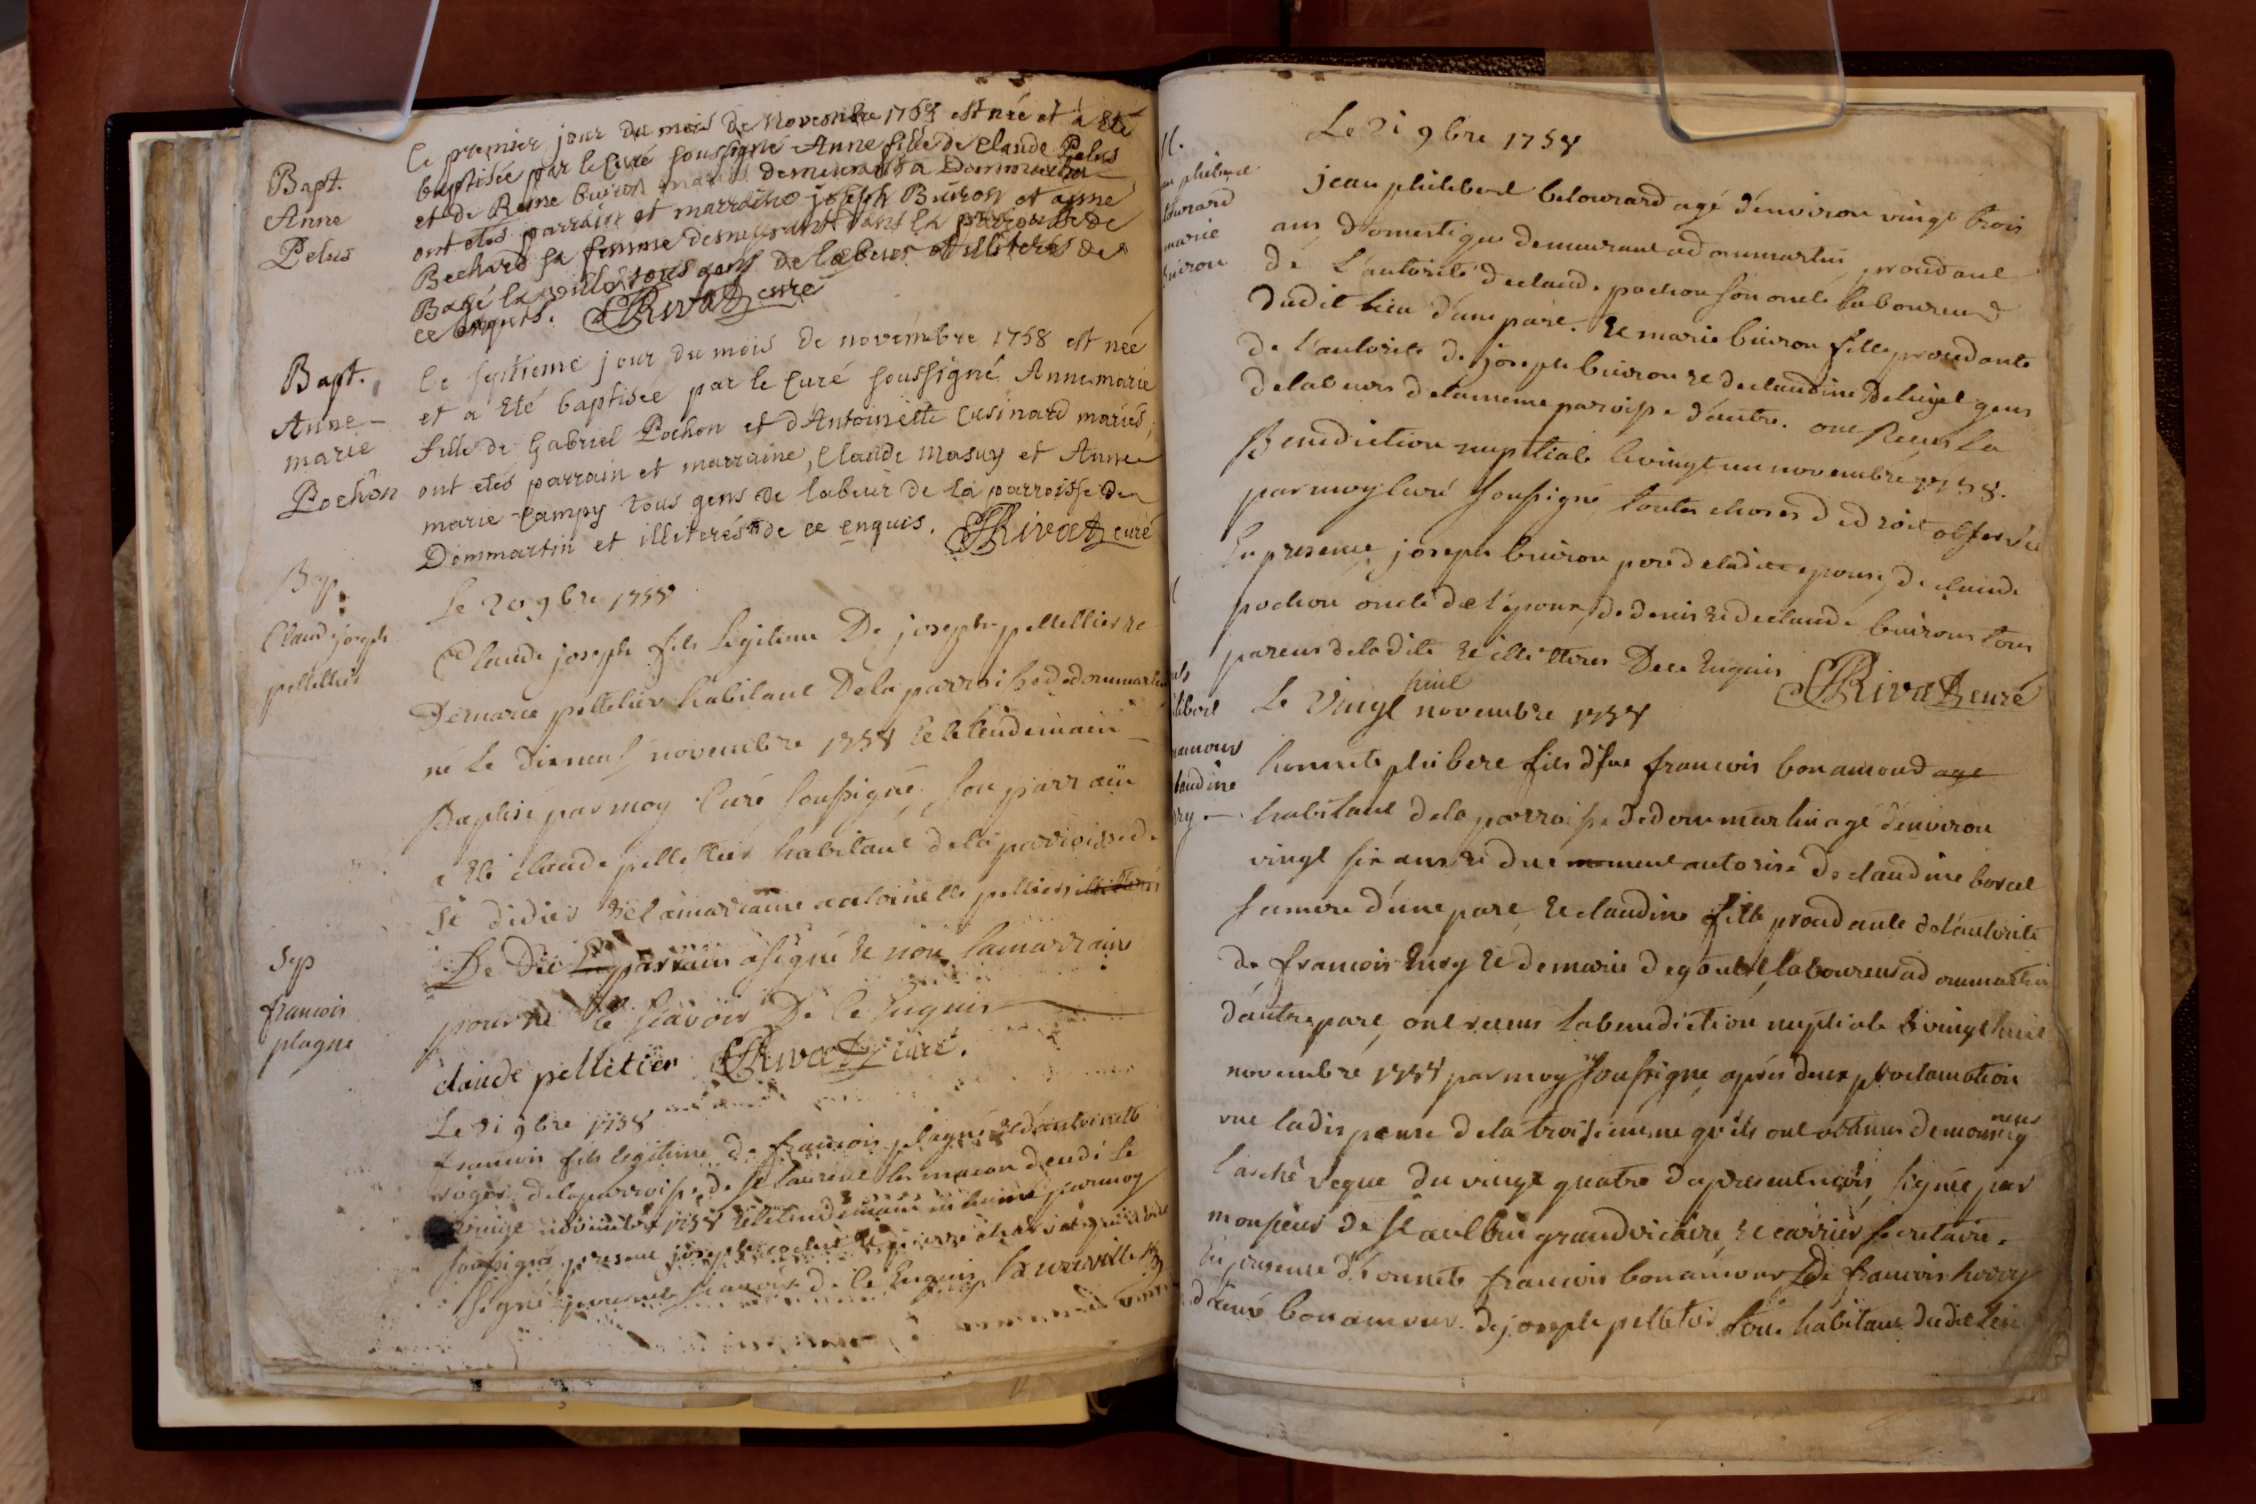 Bapt.
Anne
Pelus
le premier jour du mois de novembre 1758 est née et a eté
baptisée par le curé soussigné Anne fille de Claude Pelus
et de Reine buiron mariés demeurants a Dommartin
ont etés parrain et marraine joseph Buiron et anne
Bechard sa femme demeurant dans la parroisse de
Bagé la ville tous gens de labeur et illiterés de
ce enquis. Rivat curé
Bapt.
Anne-
marie
Pochon
le septieme jour du mois de novembre 1758 est née
et a eté baptisée par le curé soussigné Anne marie
fille de Gabriel Pochon et d'Antoinette Cusinard mariés,
ont etés parrain et marraine, Claude Masuy et Anne
marie Campy tous gens de labeur de la parroisse de
Dommartin et illiterés de ce enquis. Rivat curé
Bap.
Claude joseph
pelletier
Le 20 9bre 1758
Claude joseph fils legitime De joseph pelletier et
De marie pelletier habitant De la parroisse de dommartin
né le dix neuf novembre 1758 et le lendemain
Baptisé par moy Curé soussigné, son parrain
a eté Claude pelletier habitant de la parroisse de
st didier et la marraine antoinette pelletier illiterés
De Dic Le parrain a signé et non la marraine
pour ne le sçavoir De Ce Enquis
claude pelletier Rivat curé.
Sep
francois
plagne
Le 21 9bre 1758
francois fils legitime de francois plagne et d'antoinette
roger de la parroisse de st laurent les macon decedé le
vingt novembre 1758 et le lendemain inhumé par moy
soussigné present joseph et pierre
signé pour ne sçavoir de ce Enquis
M.
jean philibert
belourard
marie
buiron
Le 21 9bre 1758
jean philibert belourard agé d'environ vingt trois
ans Domestique demeurant a dommartin procedant
de L'autorité de claude pochon son oncle laboureur
dudit lieu d'une part. et marie buiron fille procedante
de l'autorité de joseph buiron et de claudine gens
de labeurs de la meme parroisse d'autre. ont Receus la
Benediction nuptiale le vingt un novembre 1758.
par moy Curé soussigné toutes choses de droit observée
En presence joseph buiron pere de ladite epouse, de claude
pochon oncle de l'epoux, de denis et de claude buiron tous
parens de ladite et illitteres De ce Enquis Rivat curé
philibert
bonamour
claudine
hury
Le Vingt huit novembre 1758
honnete philibert fils d'feu francois bonamour age
habitant de la parroisse de dommartin agé d'environ
vingt six ans et duement autorisé de claudine borcel
sa mere d'une part, et claudine fille procedante de l'autorité
de francois hury et de marie degoutel, laboureur a dommartin
d'autre part, ont receus la benediction nuptiale le vingt huit
novembre 1758 par moy soussigné après deux proclamation
vue la dispense de la troisieme qu'ils ont obtenus de monseigneur
l'arché veque du vingt quatre du present mois, signée par
monsieur de st aulbin grand vicaire, et carrier secretaire.
En presence d'honnete francois bonamour de francois hury
d'aimé bonamour de joseph pelletier tous habitans dudit lieu